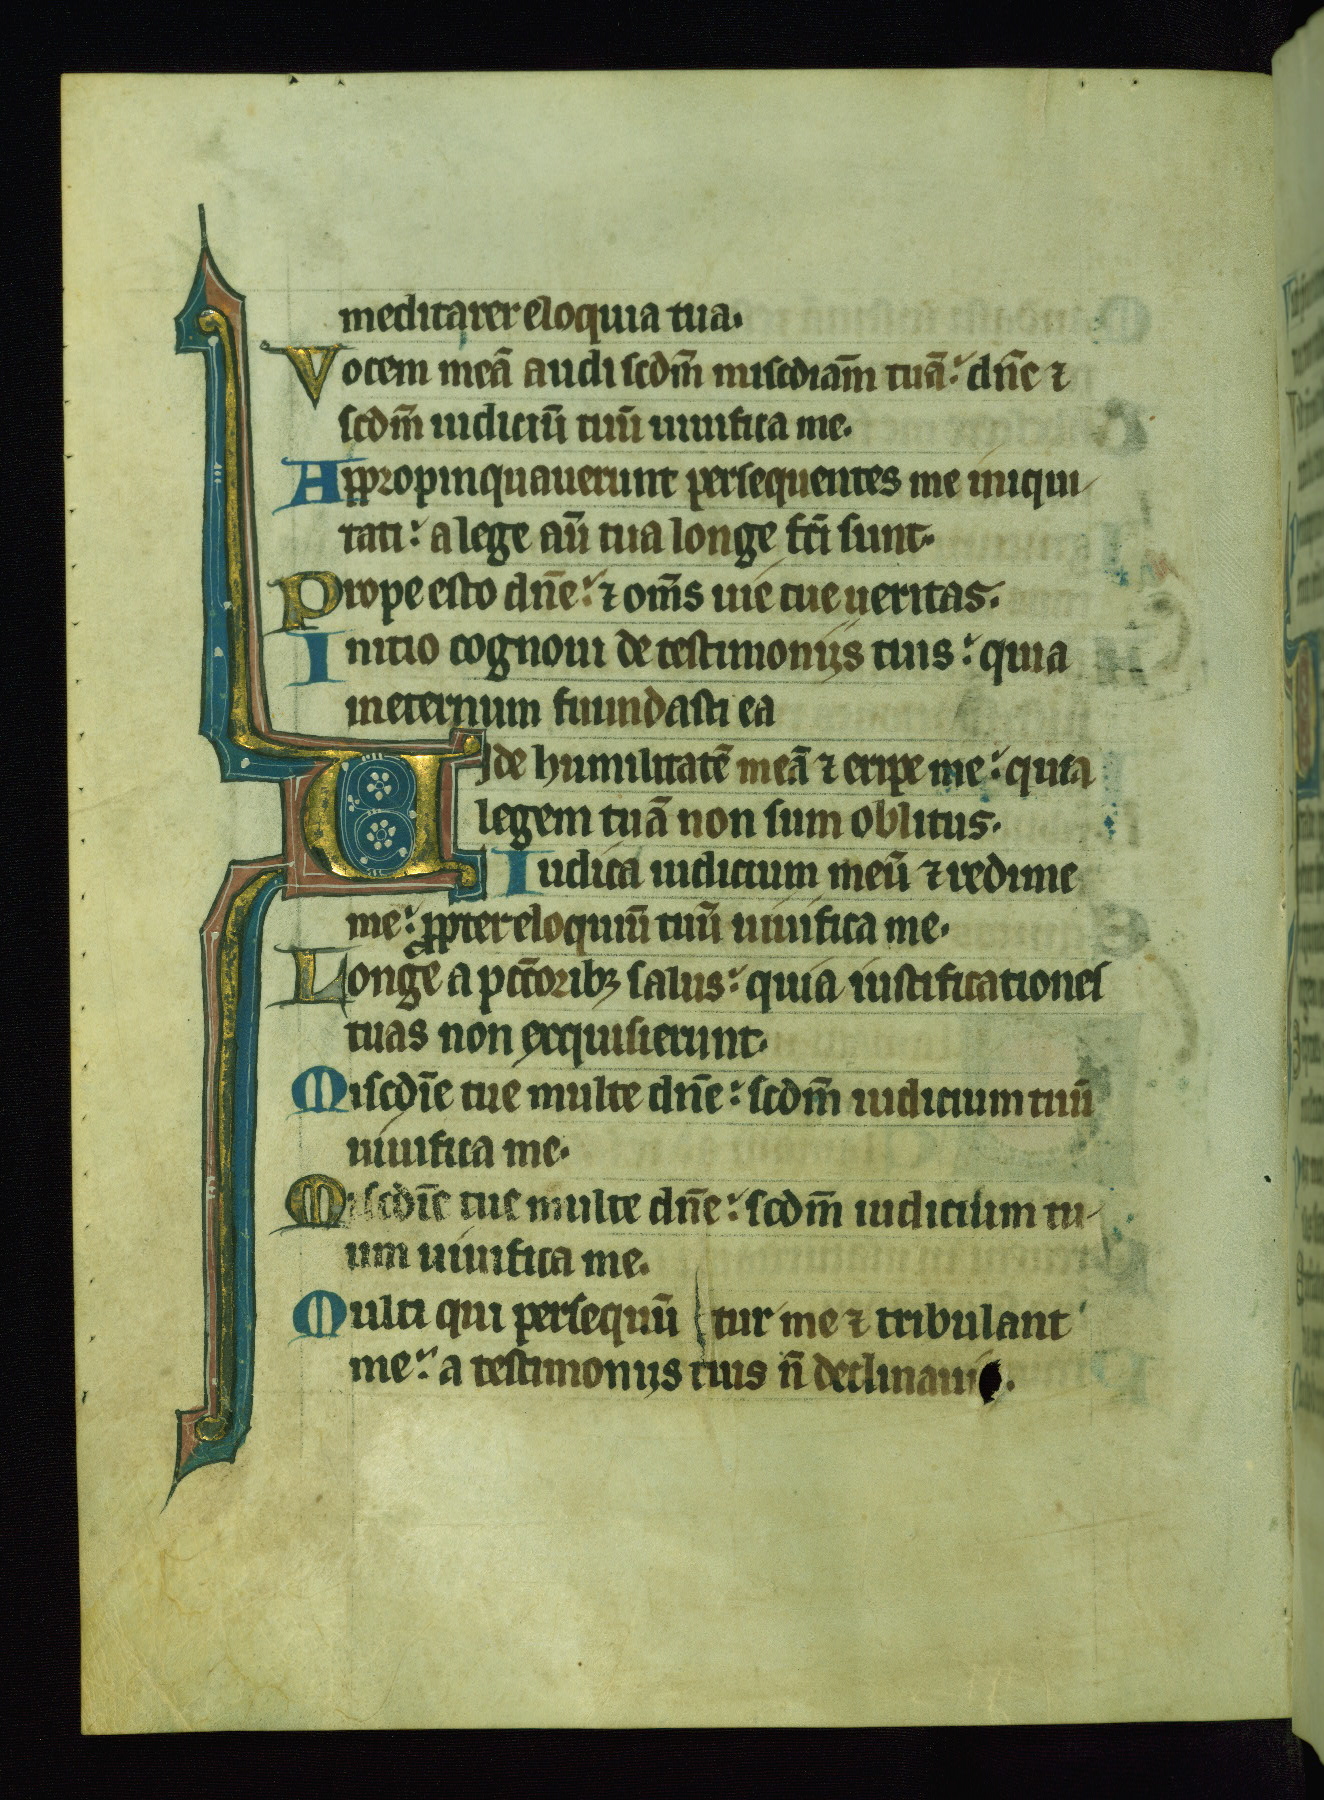 meditarer eloquia tua.
Vocem meā audi scdm̄ miscdiam̄ tuā: dn̄e ⁊
scdm̄ iudiciū tuū uiuifica me.
Appropinquauerunt persequentes me iniqui
tati: a lege aū tua longe fc̄i sunt.
Prope esto dn̄e: ⁊ om̄s uie tue ueritas.
Initio cognoui de testimonijs tuis: quia
ineternum fuundasti ea
Uide humilitatē meā ⁊ eripe me: quia
legem tuā non sum oblitus.
Iudica iudicium meū ⁊ redime
me: ꝓpter eloquiū tuū uiuifica me.
Longe a pcc̄oribꝫ salus: quia iustificationes
tuas non exquisierunt.
Miscdīe tue multe dn̄e: scdm̄ iudicium tuū
uiuifica me.
Miscdīe tue multe dn̄e: scdm̄ iudicium tu-
um uiuifica me.
Multi qui persequū tur me ⁊ tribulant
me: a testimonijs tuis n̄ declinaui.